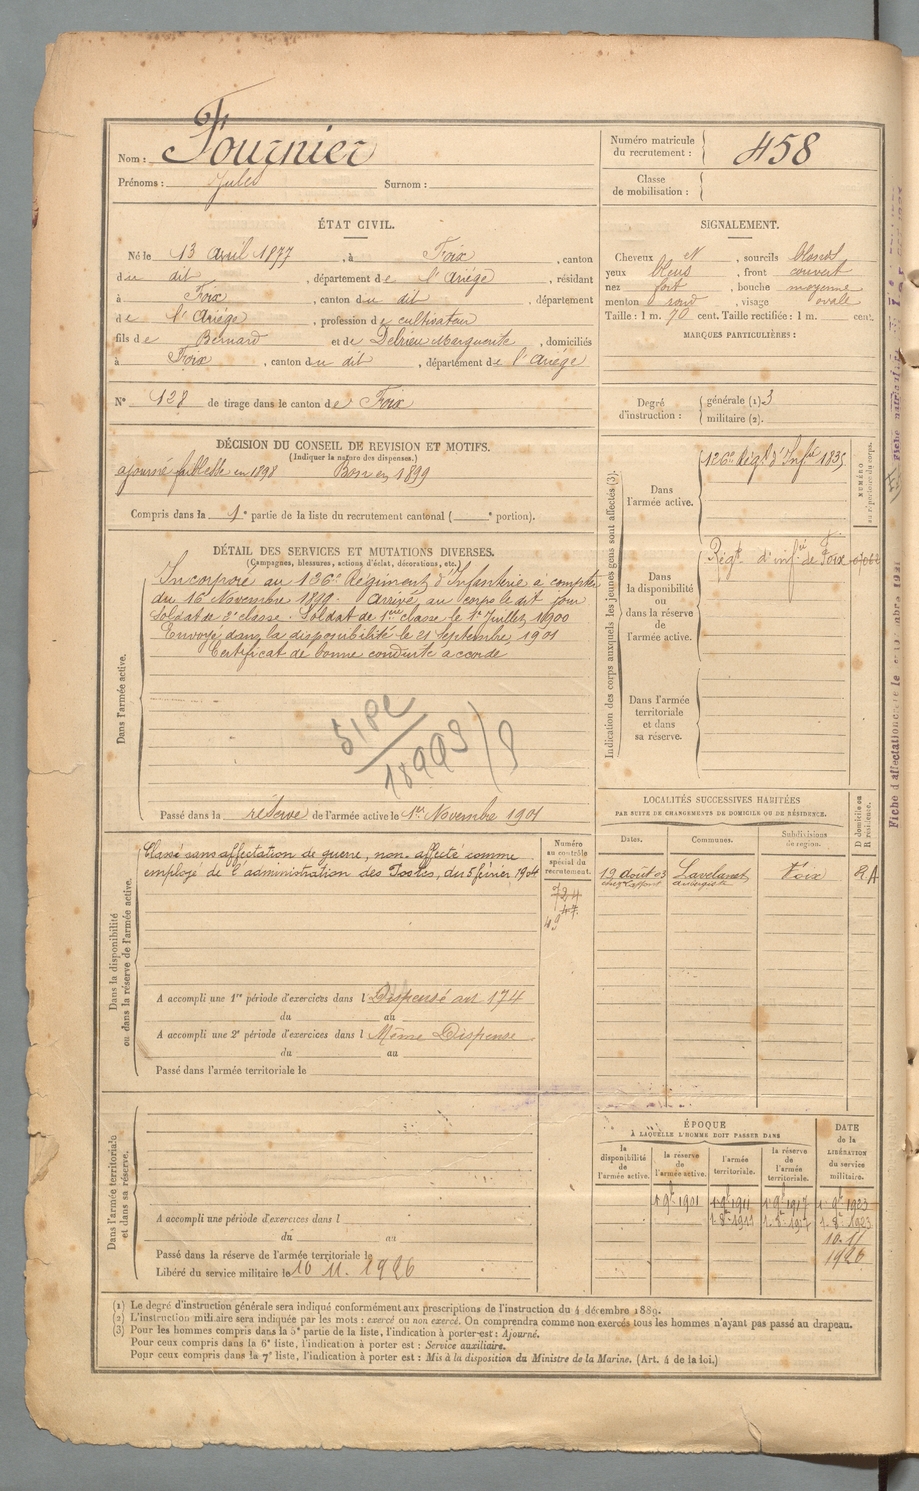 Nom : Fournier
Prénoms : Jules Surnom :
Numéro matricule du recrutement : 458
Classe de mobilisation :
ÉTAT CIVIL.
Né le 13 avril 1877, à Foix, canton
du dit, département de l'Ariège, résidant
à Foix, canton du dit, département
de l'Ariège, profession de cultivateur
fils de Bernard et de Delrieu Marguerite, domiciliés
à Foix, canton du dit, département de l'Ariège
SIGNALEMENT.
Cheveux N, sourcils blonds
yeux bleus, front couvert
nez fort, bouche moyenne
menton rond, visage ovale
Taille : 1 m. 70 cent. Taille rectifiée : 1 m. cent.
MARQUES PARTICULIÈRES :
N° 128 de tirage dans le canton de Foix
Degré d'instruction : générale (1) 3
militaire (2).
DÉCISION DU CONSEIL DE REVISION ET MOTIFS.
(Indiquer la nature des dispenses.)
ajourné faiblesse en 1898 Bon en 1899
Compris dans la 1e partie de la liste du recrutement cantonal ( e portion).
DÉTAIL DES SERVICES ET MUTATIONS DIVERSES.
(Campagnes, blessures, actions d'éclat, décorations, etc.)
Dans l'armée active.
Incorporé au 126e Régiment d'Infanterie à compter
du 16 Novembre 1899. Arrivé au corps le dit jour
Soldat de 2e classe. Soldat de 1ère classe le 1er Juillet 1900
Envoyé dans la disponibilité le 21 Septembre 1901
Certificat de bonne conduite accordé
Passé dans la réserve de l'armée active le 1er Novembre 1901
Indication des corps auxquels les jeunes gens sont affectés (3).
NUMÉRO au répertoire du corps.
Dans l'armée active.
126e Régt d'Infie 1835
Dans la disponibilité ou dans la réserve de l'armée active.
Régt d'infie de Foix
Dans l'armée territoriale et dans sa réserve.
LOCALITÉS SUCCESSIVES HABITÉES
PAR SUITE DE CHANGEMENTS DE DOMICILE OU DE RÉSIDENCE.
Dates. Communes. Subdivisions de région. D domicile ou R résidence.
19 août 03 Lavelanet Foix R A
chez Laffont aubergiste
Dans la disponibilité ou dans la réserve de l'armée active.
Classé sans affectation de guerre, non affecté comme
employé de l'administration des Postes, du 5 février 1904
Numéro au contrôle spécial du recrutement.
A accompli une 1re période d'exercices dans l Dispensé art 174
du au
A accompli une 2e période d'exercices dans l Même Dispense
du au
Passé dans l'armée territoriale le
Dans l'armée territoriale et dans sa réserve.
A accompli une période d'exercices dans l
du au
Passé dans la réserve de l'armée territoriale le
Libéré du service militaire le 10 11. 1926
ÉPOQUE
À LAQUELLE L'HOMME DOIT PASSER DANS
DATE de la LIBÉRATION du service militaire.
la disponibilité de l'armée active.
la réserve de l'armée active.
l'armée territoriale.
la réserve de l'armée territoriale.
1 9e 1901 1 9e 1911 1 9e 1917 1 9e 1923
1. 8e 1911 1. 8e 1917 1. 8e 1923
10.11
1926
(1) Le degré d'instruction générale sera indiqué conformément aux prescriptions de l'instruction du 4 décembre 1889.
(2) L'instruction militaire sera indiquée par les mots : exercé ou non exercé. On comprendra comme non exercés tous les hommes n'ayant pas passé au drapeau.
(3) Pour les hommes compris dans la 5e partie de la liste, l'indication à porter est : Ajourné.
Pour ceux compris dans la 6e liste, l'indication à porter est : Service auxiliaire.
Pour ceux compris dans la 7e liste, l'indication à porter est : Mis à la disposition du Ministre de la Marine. (Art. 4 de la loi.)